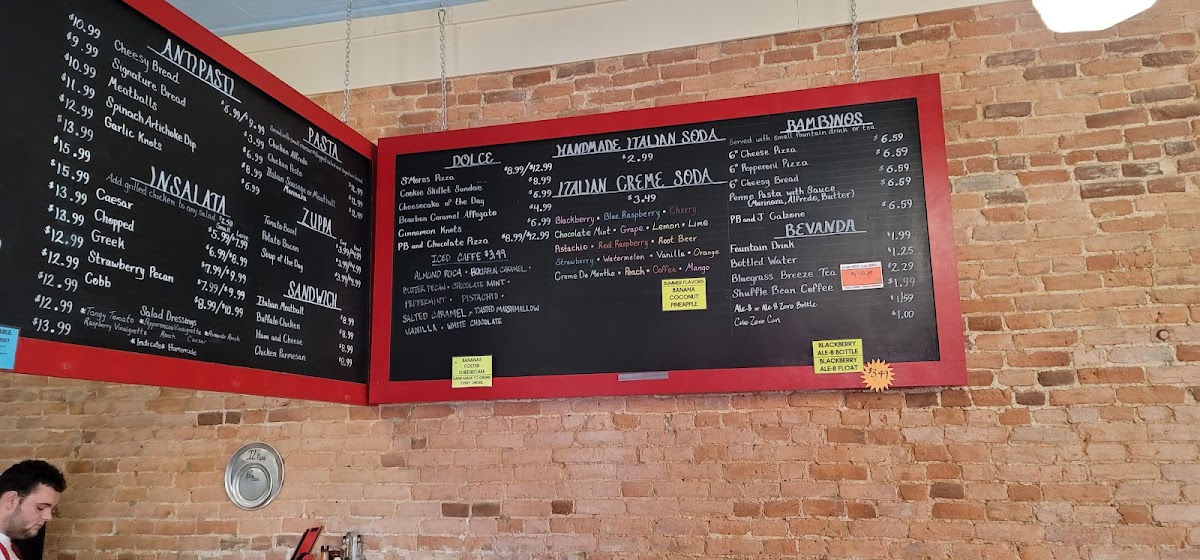 $10.99
$9.99
$10.99
$11.99
$12.99
$13.99
$15.99
$15.99
$13.99
$13.99
$12.99
$12.99
$12.99
$12.99
$13.99
ANTIPASTI
Cheesy Bread $6.99/$9.99
Signature Bread $3.99
Meatballs $6.99
Spinach Artichoke Dip $8.99
Garlic Knots $6.99
INSALATA
Add grilled chicken to any salad
Small Large
Caesar $5.99/$7.99
Chopped $6.99/$8.99
Greek $7.99/$9.99
Strawberry Pecan $7.99/$9.99
Cobb $8.99/$10.99
Salad Dressings
*Tangy Tomato *Hypocrisy Vinaigrette *Amanda Ranch
Raspberry Vinaigrette Ranch Caesar
*Indicates Homemade
PASTA
Chicken Alfredo
Chicken Pesto
Italian Sausage or Meatball
Marinara
ZUPPA
Tomato Basil $3.99/$4.99
Potato Bacon $3.99/$4.99
Soup of the Day $3.99/$4.99
SANDWICH
Italian Meatball $8.99
Buffalo Chicken $8.99
Ham and Cheese $8.99
Chicken Parmesan $8.99
DOLCE
S'Mores Pizza $8.99/$12.99
Cookie Skillet Sundae $8.99
Cheesecake of the Day $6.99
Bourbon Caramel Affogato $4.99
Cinnamon Knots $6.99
PB and Chocolate Pizza $8.99/$12.99
ICED CAFFE $3.99
ALMOND ROCA · BOURBON CARAMEL ·
BUTTER PECAN · CHOCOLATE MINT ·
PEPPERMINT · PISTACHIO ·
SALTED CARAMEL · TOASTED MARSHMALLOW
VANILLA · WHITE CHOCOLATE
BANANAS
FOSTER
CHEESECAKE
HAND-MADE TO ORDER
EVERY ORDER
HANDMADE ITALIAN SODA
$2.99
ITALIAN CREME SODA
$3.49
Blackberry • Blue Raspberry • Cherry
Chocolate Mint • Grape • Lemon • Lime
Pistachio • Red Raspberry • Root Beer
Strawberry • Watermelon • Vanilla • Orange
Creme De Menthe • Peach • Coffee • Mango
SUMMER FLAVORS
BANANA
COCONUT
PINEAPPLE
BAMBINOS
Served with small fountain drink or tea
6" Cheese Pizza $6.59
6" Pepperoni Pizza $6.59
6" Cheesy Bread $6.59
Penne Pasta with Sauce $6.59
(Marinara, Alfredo, Butter)
PB and J Calzone $6.59
BEVANDA
Fountain Drink $1.99
Bottled Water $1.25
Bluegrass Breeze Tea $2.29
Shuffle Bean Coffee $1.99
Ale-8 or Ale 8 Zero Bottle $1.59
Coke Zero Can $1.00
BLACKBERRY
ALE-8 BOTTLE
BLACKBERRY
ALE-8 FLOAT
$3.49